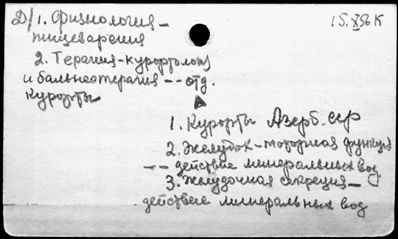 Д/1. Физиология-
пищеварения
15.XI 56 К
2. Терапия-курортология
и бальнеотерапия -- отд.
курорты
1. Курорты Азерб. сср
2. Желудок-моторная функция
-- действие минеральных вод
3. Желудочная секреция-
действие минеральных вод